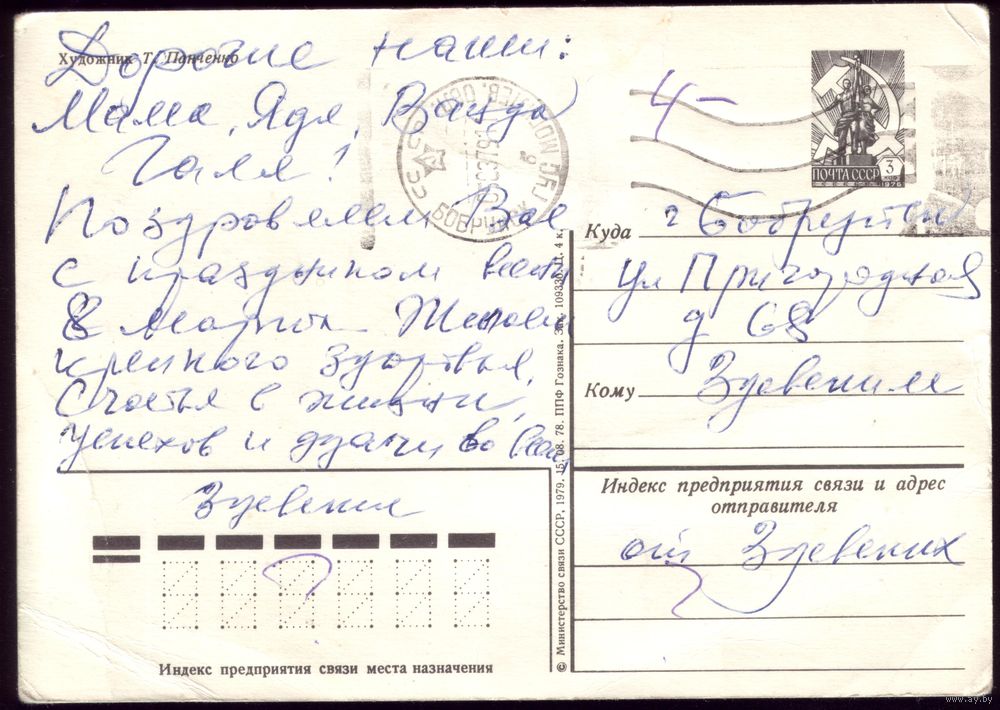 Художник Т. Панченко
Дорогие наши:
Мама, Ядя, Ванда
Галя!
Поздравляем Вас
с праздником весны
8 Марта Желаем
крепкого здоровья,
счастья в жизни,
успехов и удачи во всем
Здевские
Индекс предприятия связи места назначения
© Министерство связи СССР, 1979. 15.08.78. ППФ Гознака. Зак. 109330. Ц. 4 к.
ПОЧТА СССР
3
1976
4-
БОБРУЙСК
Куда г Бобруйск
ул Пригородная
д 68
Кому
Индекс предприятия связи и адрес
отправителя
от